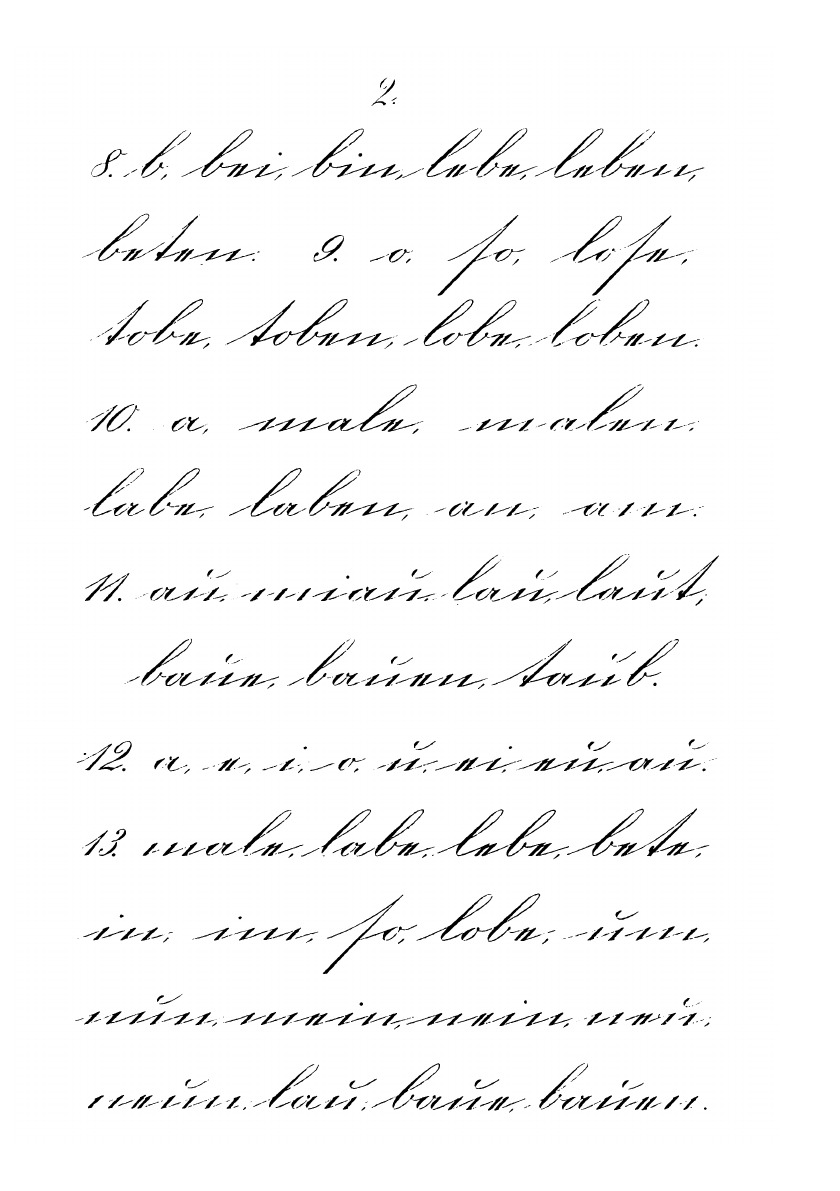 2.
8. b, bei, bin, lebe, leben,
beten. 9. o, so, lose,
tobe, toben, lobe, loben.
10. a, male, malen,
labe, laben, an, am.
11. au, miau, lau, laut,
baue, bauen, taub.
12. a, e, i, o, u, ei, eu, au.
13. male, labe, lebe, bete,
in, im, so, lobe, um,
nun, mein, nein, neu,
neun, lau, baue, bauen.